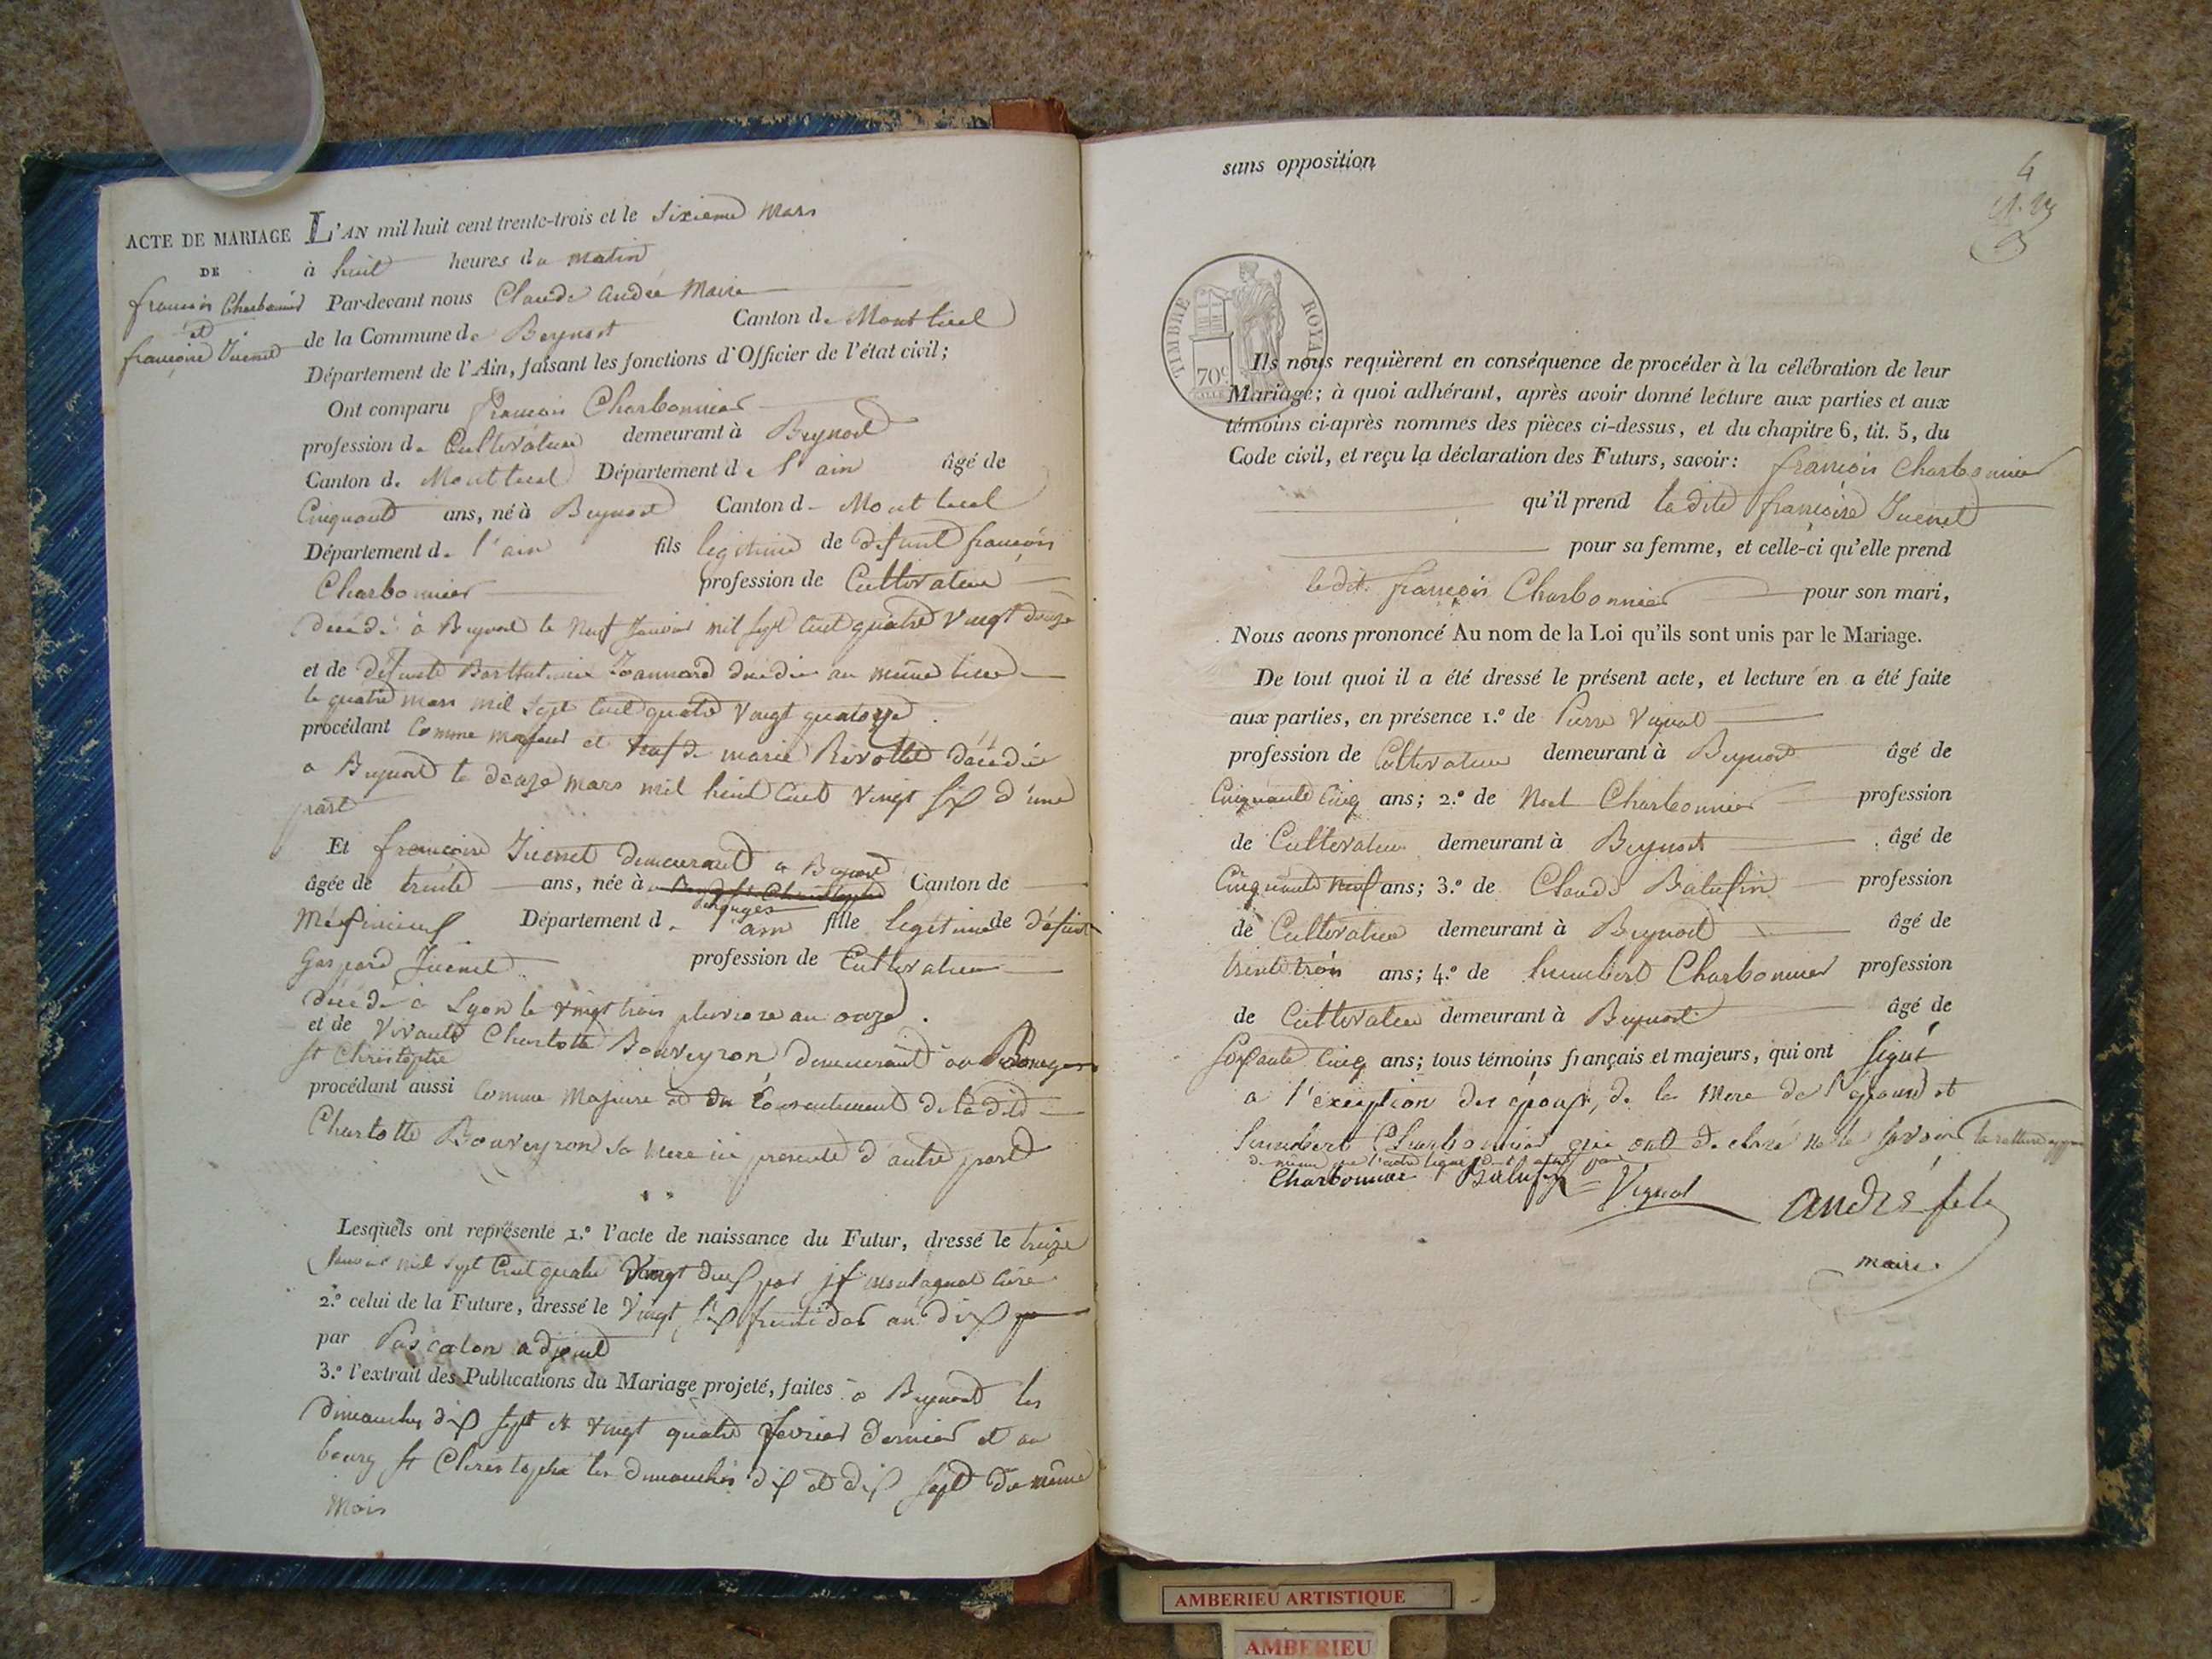 ACTE DE MARIAGE
DE
françois Charbonnier
et
françoise Juenet
L'AN mil huit cent trente-trois et le sixieme mars
à huit heures du matin
Par-devant nous Claude André Maire
de la Commune de Beynost Canton de Montluel
Département de l'Ain, faisant les fonctions d'Officier de l'état civil;
Ont comparu françois Charbonnier
profession de Cultivateur demeurant à Beynost
Canton de Montluel Département de l'ain âgé de
Cinquante ans, né à Beynost Canton de Montluel
Département de l'ain fils legitime de defunt françois
Charbonnier profession de Cultivateur
décédé à Beynost le neuf Janvier mil sept cent quatre vingt douze
et de défunte Barthelmie Joannard décédée au même lieu
le quatre mars mil sept cent quatre vingt quatorze
procédant comme majeur et veuf de marie Rivollet décédée
a Beynost le douze mars mil huit cent vingt six d'une
part
Et françoise Juenet demeurant a Beynost
âgée de trente ans, née à Canton de
Meximieux Département de l'ain fille legitime de défunt
Gaspard Juenet profession de Cultivateur
décédé à Lyon le vingt trois pluviose an onze
et de vivante Charlotte Bouveyron demeurant au Bourg
st Christophe
procédant aussi comme Majeure et du consentement de la dite
Charlotte Bouveyron sa mere ici presente d'autre part
Lesquels ont représenté 1.º l'acte de naissance du Futur, dressé le treize
Janvier mil sept cent quatre vingt deux par curé
2.º celui de la Future, dressé le vingt six fructidor an dix
par Pascalon adjoint
3.º l'extrait des Publications du Mariage projeté, faites à Beynost les
dimanches dix sept et vingt quatre fevrier dernier et au
bourg st Christophe les dimanches dix et dix sept du même
mois
sans opposition
4
TIMBRE ROYAL
70c
Ils nous requièrent en conséquence de procéder à la célébration de leur
Mariage; à quoi adhérant, après avoir donné lecture aux parties et aux
témoins ci-après nommés des pièces ci-dessus, et du chapitre 6, tit. 5, du
Code civil, et reçu la déclaration des Futurs, savoir: françois Charbonnier
qu'il prend la dite françoise Juenet
pour sa femme, et celle-ci qu'elle prend
le dit françois Charbonnier pour son mari,
Nous avons prononcé Au nom de la Loi qu'ils sont unis par le Mariage.
De tout quoi il a été dressé le présent acte, et lecture en a été faite
aux parties, en présence 1.º de Pierre Vignat
profession de Cultivateur demeurant à Beynost âgé de
Cinquante cinq ans; 2.º de Noel Charbonnier profession
de Cultivateur demeurant à Beynost âgé de
Cinquante neuf ans; 3.º de Claude Balufin profession
de Cultivateur demeurant à Beynost âgé de
trente trois ans; 4.º de humbert Charbonnier profession
de Cultivateur demeurant à Beynost âgé de
soixante cinq ans; tous témoins français et majeurs, qui ont signé
a l'exception des époux, de la Mere de l'épouse et
humbert Charbonnier qui ont declaré ne le savoir
Charbonnier Balufin Vignat andré
maire.
AMBERIEU ARTISTIQUE
AMBERIEU